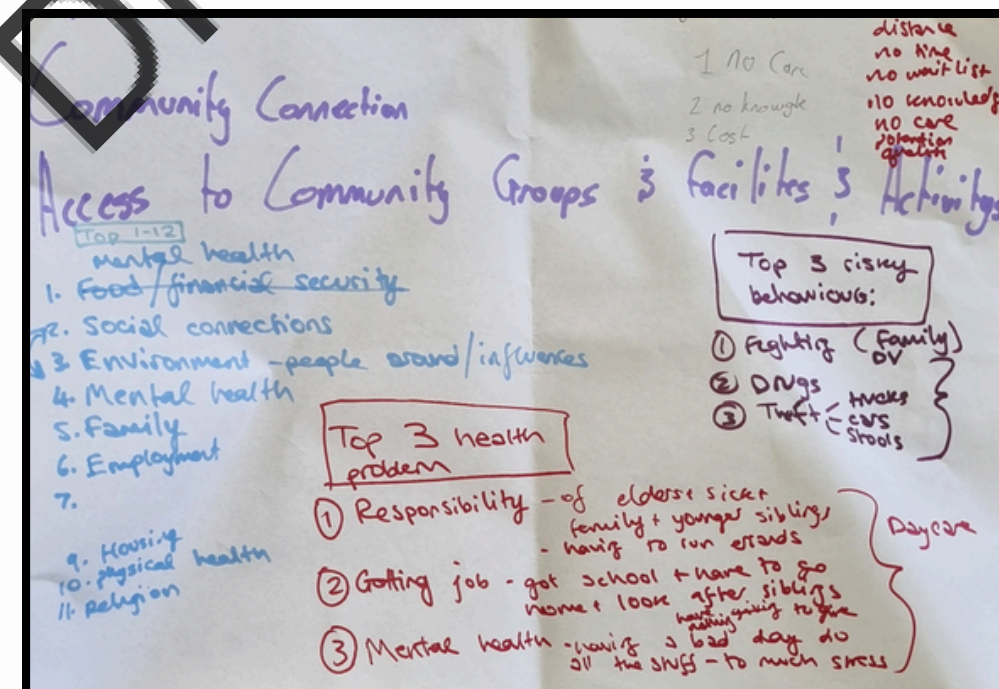 distance
no time
no wait list
no knowledg
no care
potention
1 no Care
2 no knowgle
3 Cost
Community Connection
Access to Community Groups & Facilites & Activitys
Top 1-12
mental health
1. Food/financial security
2. Social connections
3 Environment - people around/influences
4. Mental health
5. Family
6. Employment
7.
9. Housing
10. physical health
11. Religion
Top 3 risky
behaviours:
① Fighting (family)
DV
② Drugs
③ Theft - trucks
- cars
- stools
Top 3 health
problem
① Responsibility - of elders + sick +
family + younger siblings
- having to run errands
② Getting job - got school + have to go
home + look after siblings
③ Mental health - having a bad day do
all the stuff - to much stress
Daycare